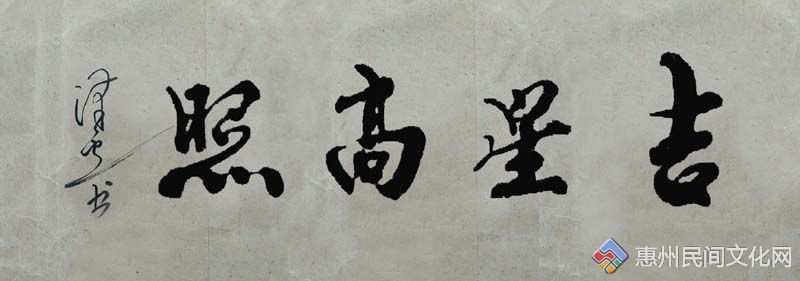 吉星高照
惠州民间文化网